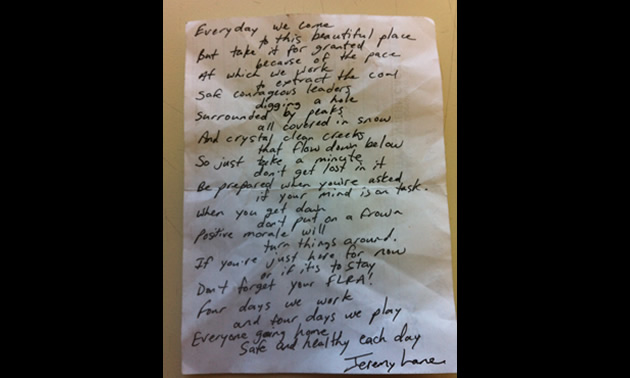 Everyday we come
to this beautiful place
But take it for granted
because of the pace
At which we work
to extract the coal
Safe courageous leaders
digging a hole
Surrounded by peaks
all covered in snow
And crystal clean creeks
that flow down below
So just take a minute
don't get lost in it
Be prepared when you're asked
if your mind is on task.
When you get down
don't put on a frown
Positive morale will
turn things around.
If you're just here for now
or if it's to stay
Don't forget your FLRA!
Four days we work
and four days we play
Everyone going home
Safe and healthy each day
Jeremy Lane